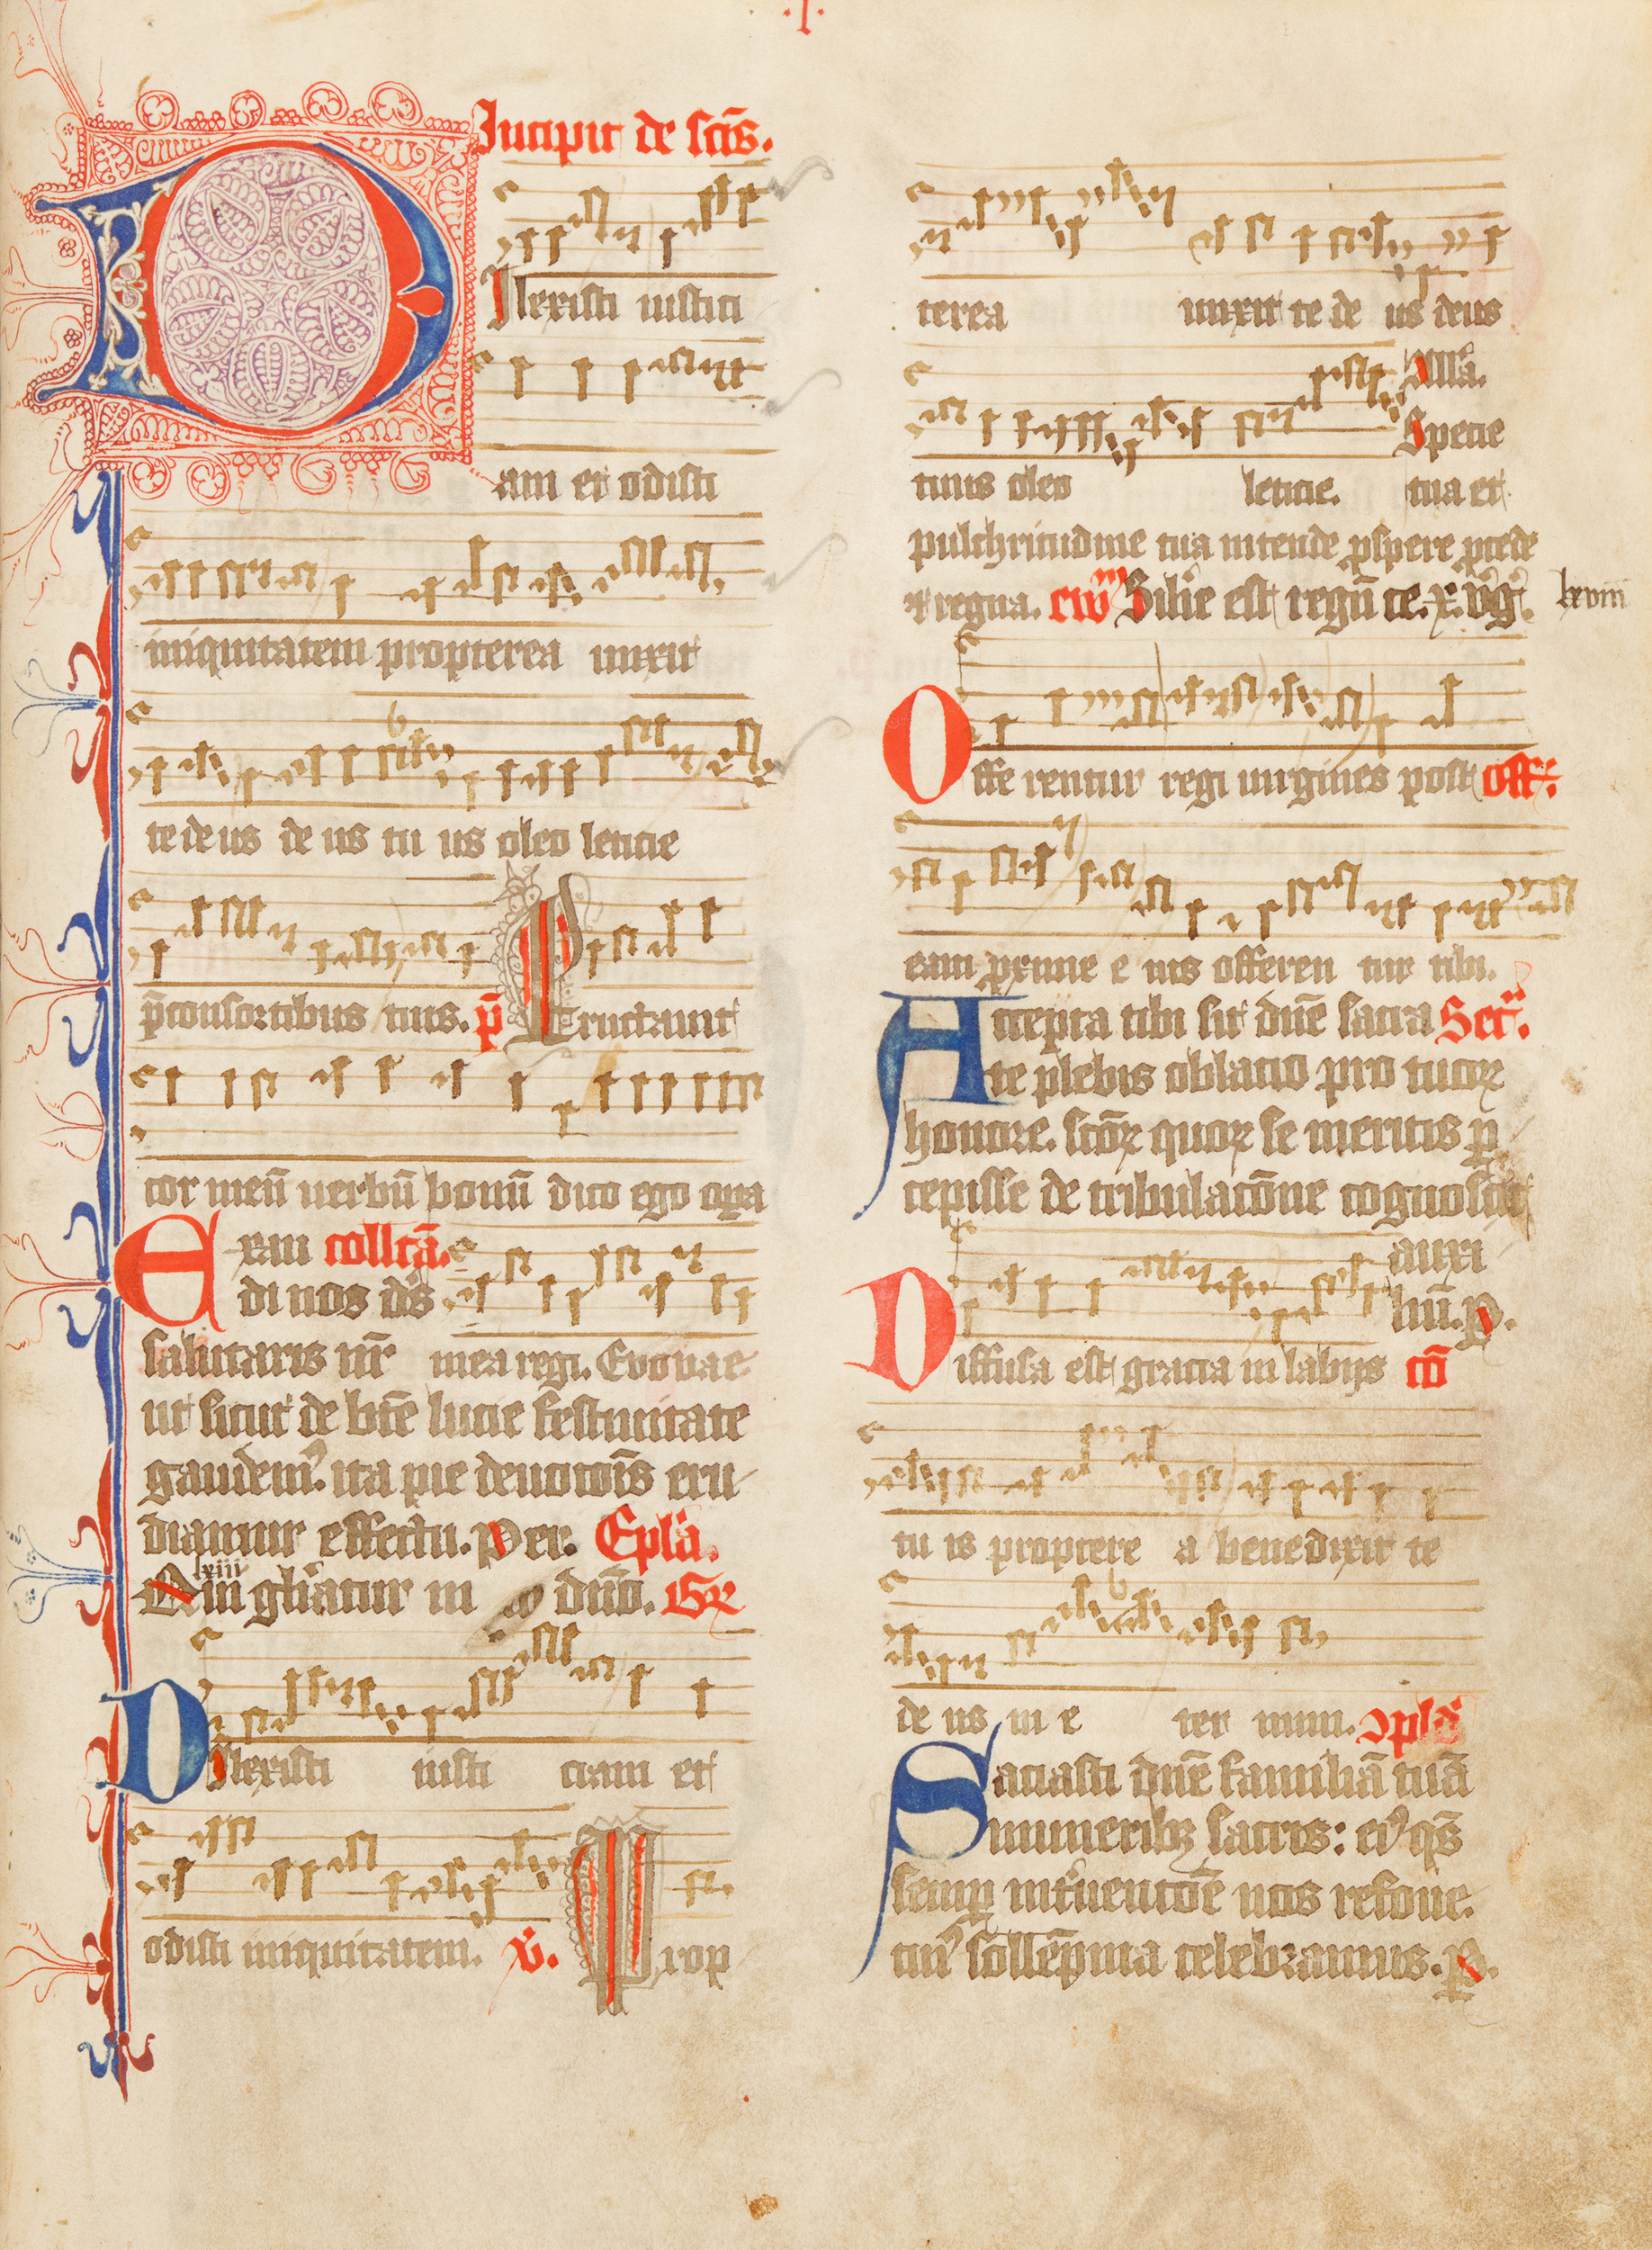 .I.
Incipit de sctīs.
Dilexisti iustici
am et odisti
iniquitatem propterea unxit
te de us de us tu us oleo leticie
p̄ consortibus tuis. p̄ Eructauit
cor meū uerbū bonū dico ego opera
Exau collcā.
di nos ds̄
salutaris nr̄ mea regi. Evovae
ut sicut de bt̄e lucie festiuitate
gaudem⁹. ita pie deuotōis eru
diamur effectu. Per. Epl̄a.
lxiii
Qui gl̄iatur in dn̄o. Gr̄
Dilexisti iusti ciam et
odisti iniquitatem. v̄. Prop
terea unxit te de us deus
tuus oleo leticie. All̄a.
Specie
tua et
pulchritudine tua intende ꝓspere ꝓcede
⁊ regna. ew̄m Sil̄ie est regn̄ ce. x. v̄ḡ. lxviii
Offe rentur regi uirgines post off:
eam proxime e ius offeren tur tibi.
Accepta tibi sit dn̄e sacra Secr̄.
te plebis oblatio pro tuoꝝ
honore. sctōꝝ quoꝝ se meritis ꝑ
cepisse de tribulacōne cognoscit
auxi
liū. P.
Diffusa est gracia in labijs cō
tu is proptere a benedixit te
de us in e ter num. ↄpl̄a
Saciasti dn̄e familiā tuā
muneribꝫ sacris: ei⁹ qs̄
semꝑ int̄uentōe nos refoue.
cui⁹ sollēpnia celebramus. P.